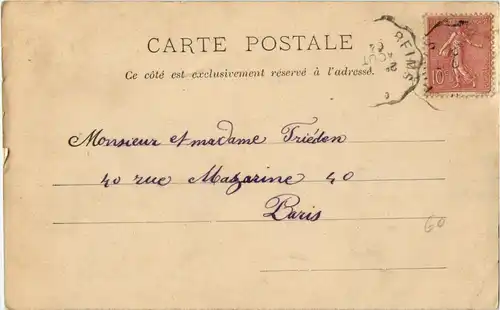 CARTE POSTALE
Ce côté est exclusivement réservé à l'adressé.
REIMS
AOUT
10
Monsieur et madame Triéden
40 rue Mazarine 40
Paris
60